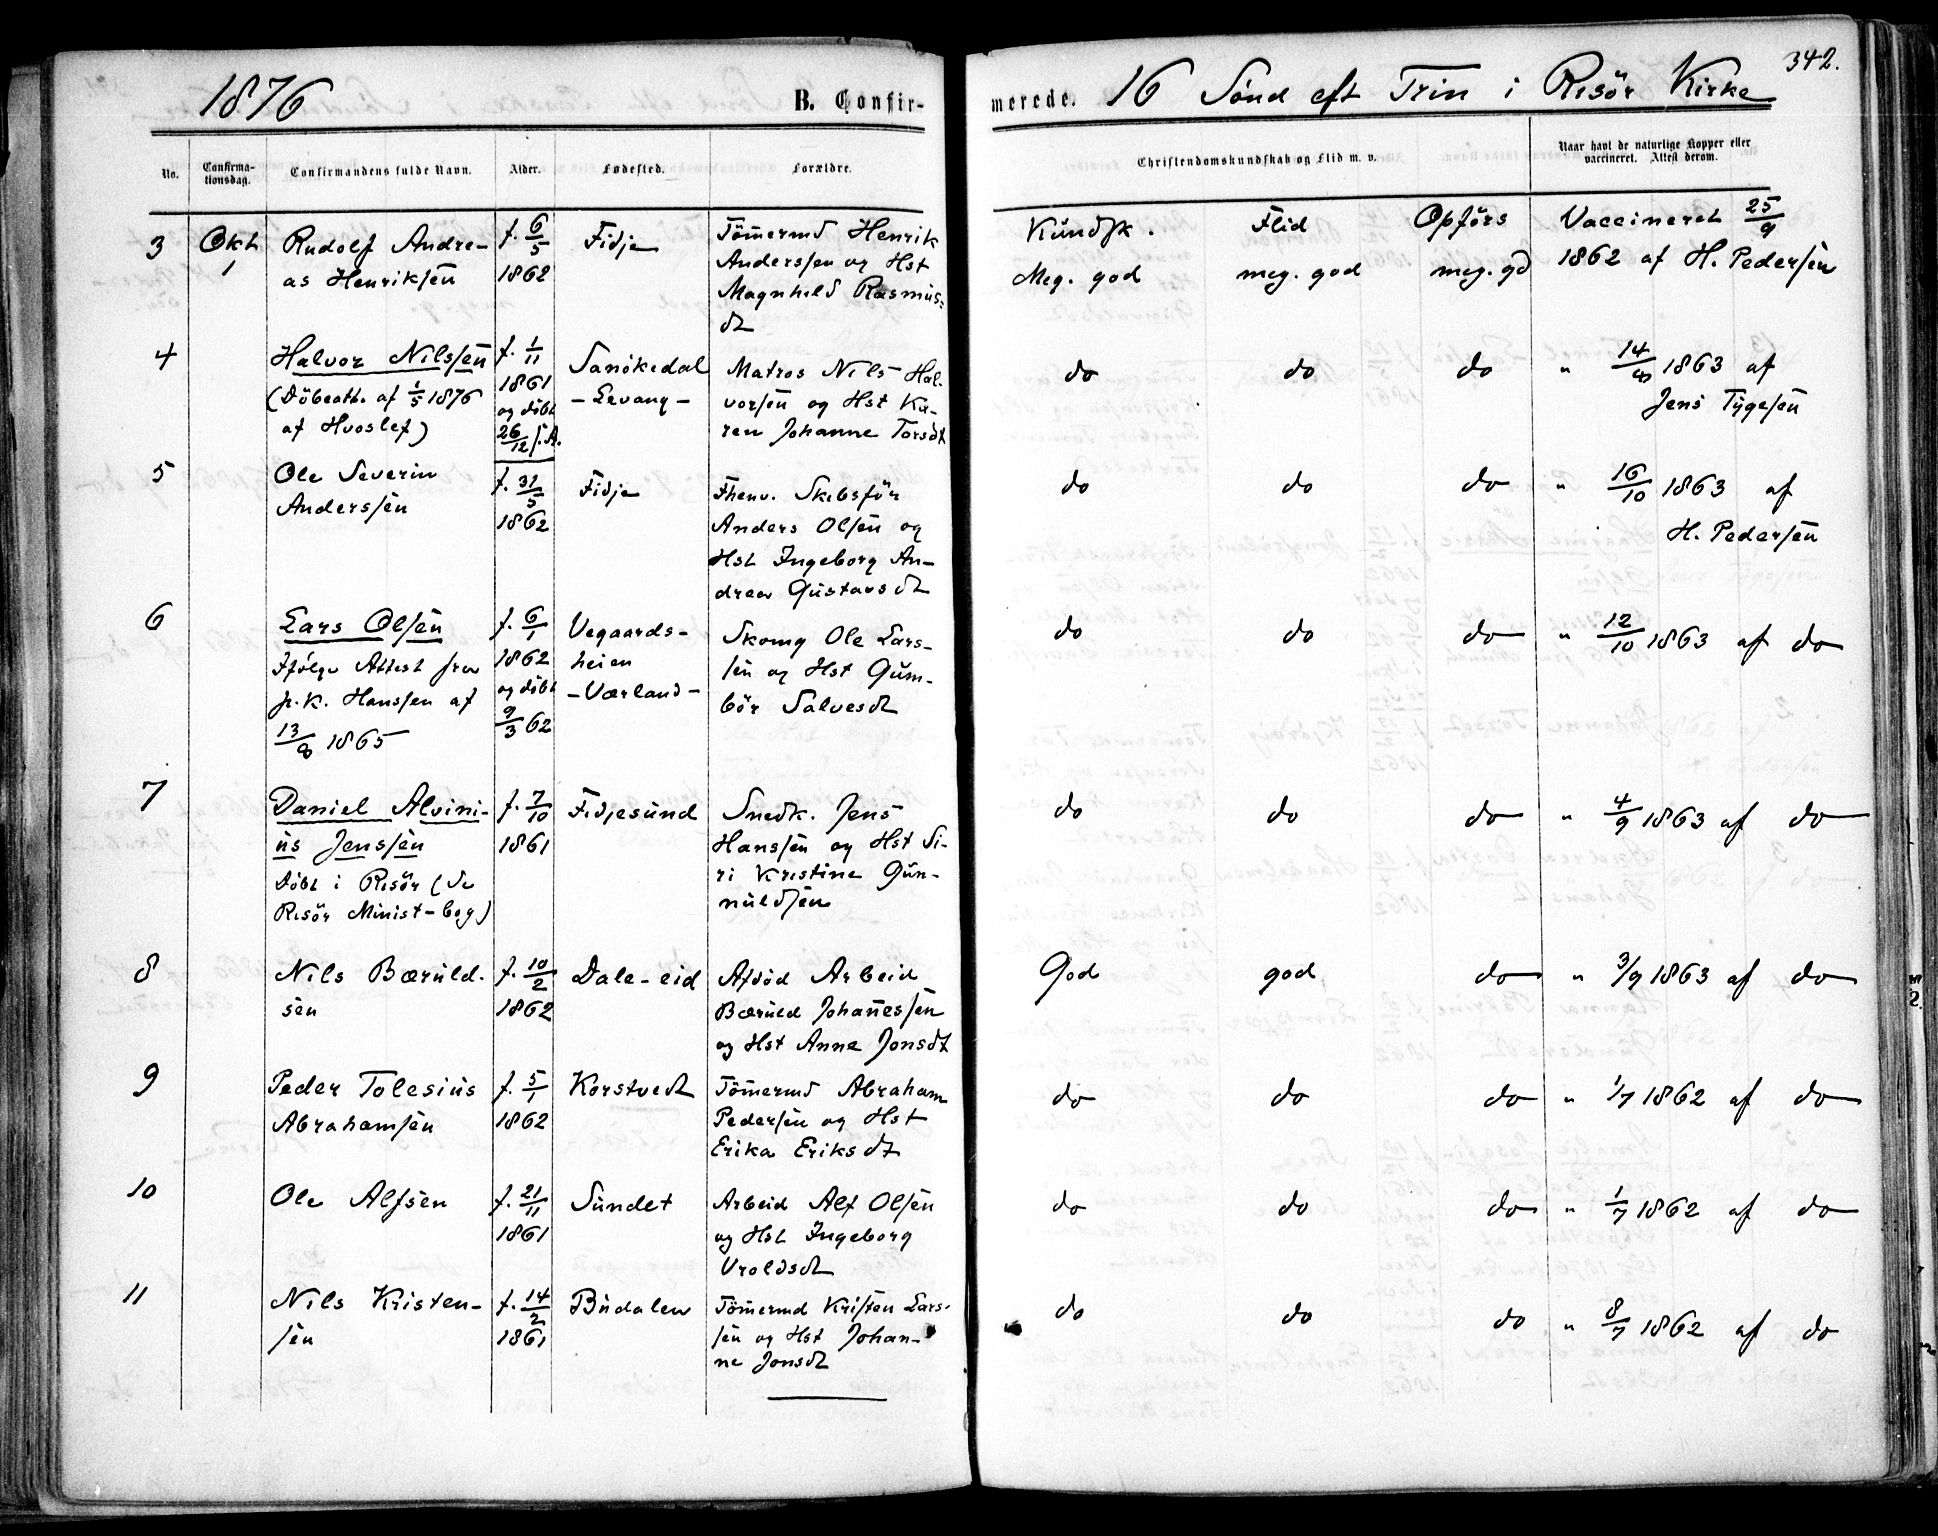 342.
1876 B. Confir- merede. 16 Sønd eft Trin i Risör Kirke
No. Confirma-tionsdag. Confirmandens fulde Navn. Alder. Fødested. Forældre. Christendomskundskab og Flid m. v. Naar havt de naturlige Kopper eller vaccineret. Attest derom.
Kundsk. Flid Opförs
3 Okt 1 Rudolf Andre- f. 6/5 Fidje Tömermd Henrik Meg. god meg. god meg. gd Vaccineret 25/9
as Henriksen 1862 Anderssen og Hst 1862 af H. Pedersen
Magnhild Rasmus-
dt
4 Halvor Nilssen f. 1/11 Sanökedal Matros Nils Hal- do do do " 14/ 1863 af
(Döbeatt. af 1/5 1876 1861 - Levang - vorsen og Hst Ka- Jens Tygesen
af Hvoslef) og döbt ren Johanne Torsdt
26/12 s. A.
5 Ole Severin f. 31/5 Fidje Fhenv. Skibsför do do do " 16/10 1863 af
Anderssen 1862 Anders Olsen og H. Pedersen
Hst Ingeborg An-
drea Gustavsdt
6 Lars Olsen f. 6/1 Vegaards- Skomg Ole Lars- do do do " 12/10 1863 af do
Ifölge Attest fra 1862 heien sen og Hst Gum-
p. K. Hanssen af og döbt - Værland - bör Salvesdt
13/8 1865 9/3 62
7 Daniel Alvini- f. 7/10 Fidjesund Snedk. Jens do do do " 4/9 1863 af do
us Jenssen 1861 Hanssen og Hst Si-
Döbt i Risör (Se ri Kristine Gun-
Risör Minist-bog) nuldsen
8 Nils Bæruld- f. 10/2 Dale-eid Afdöd Arbeid God god do " 3/9 1863 af do
sen 1862 Bæruld Johanessen
og Hst Anne Jonsdt
9 Peder Tolesius f. 5/1 Korstvedt Tömermd Abraham do do do " 1/7 1862 af do
Abrahamsen 1862 Pedersen og Hst
Erika Eriksdt
10 Ole Alfsen f. 21/11 Sundet Arbeid Alf Olsen do do do " 1/7 1862 af do
1861 og Hst Ingeborg
Vroldsdt
11 Nils Kristen- f. 14/2 Budalen Tömermd Kristen Lars- do do do " 8/7 1862 af do
sen 1861 sen og Hst Johan-
ne Jonsdt